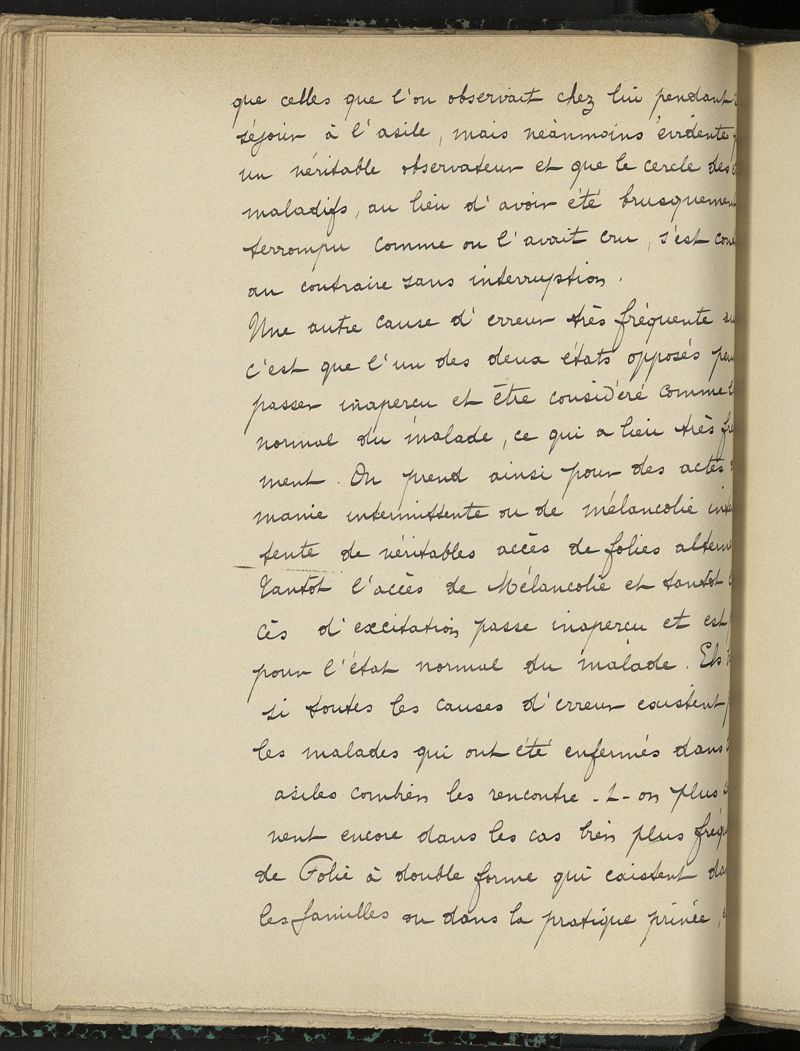 que celles que l'on observait chez lui pendant
séjour à l'asile, mais néanmoins évidente
un véritable observateur et que le cercle des
maladifs, au lieu d'avoir été brusquemen
terrompu comme on l'avait cru, s'est con
au contraire sans interruption.
Une autre cause d'erreur très fréquente au
c'est que l'un des deux états opposés peu
passer inaperçu et être considéré comme l
normal du malade, ce qui a lieu très fré
ment. On prend ainsi pour des actes
manie intermittente ou de mélancolie inte
tente de véritables accès de folies altern
Tantôt l'accès de Mélancolie et tantôt
cès d'excitation passe inaperçu et est
pour l'état normal du malade. Ets
si toutes les causes d'erreur existent
les malades qui ont été enfermés dans
asiles combien les rencontre-t-on plus
vent encore dans les cas bien plus fréq
de Folie à double forme qui existent da
les familles ou dans la pratique privée,